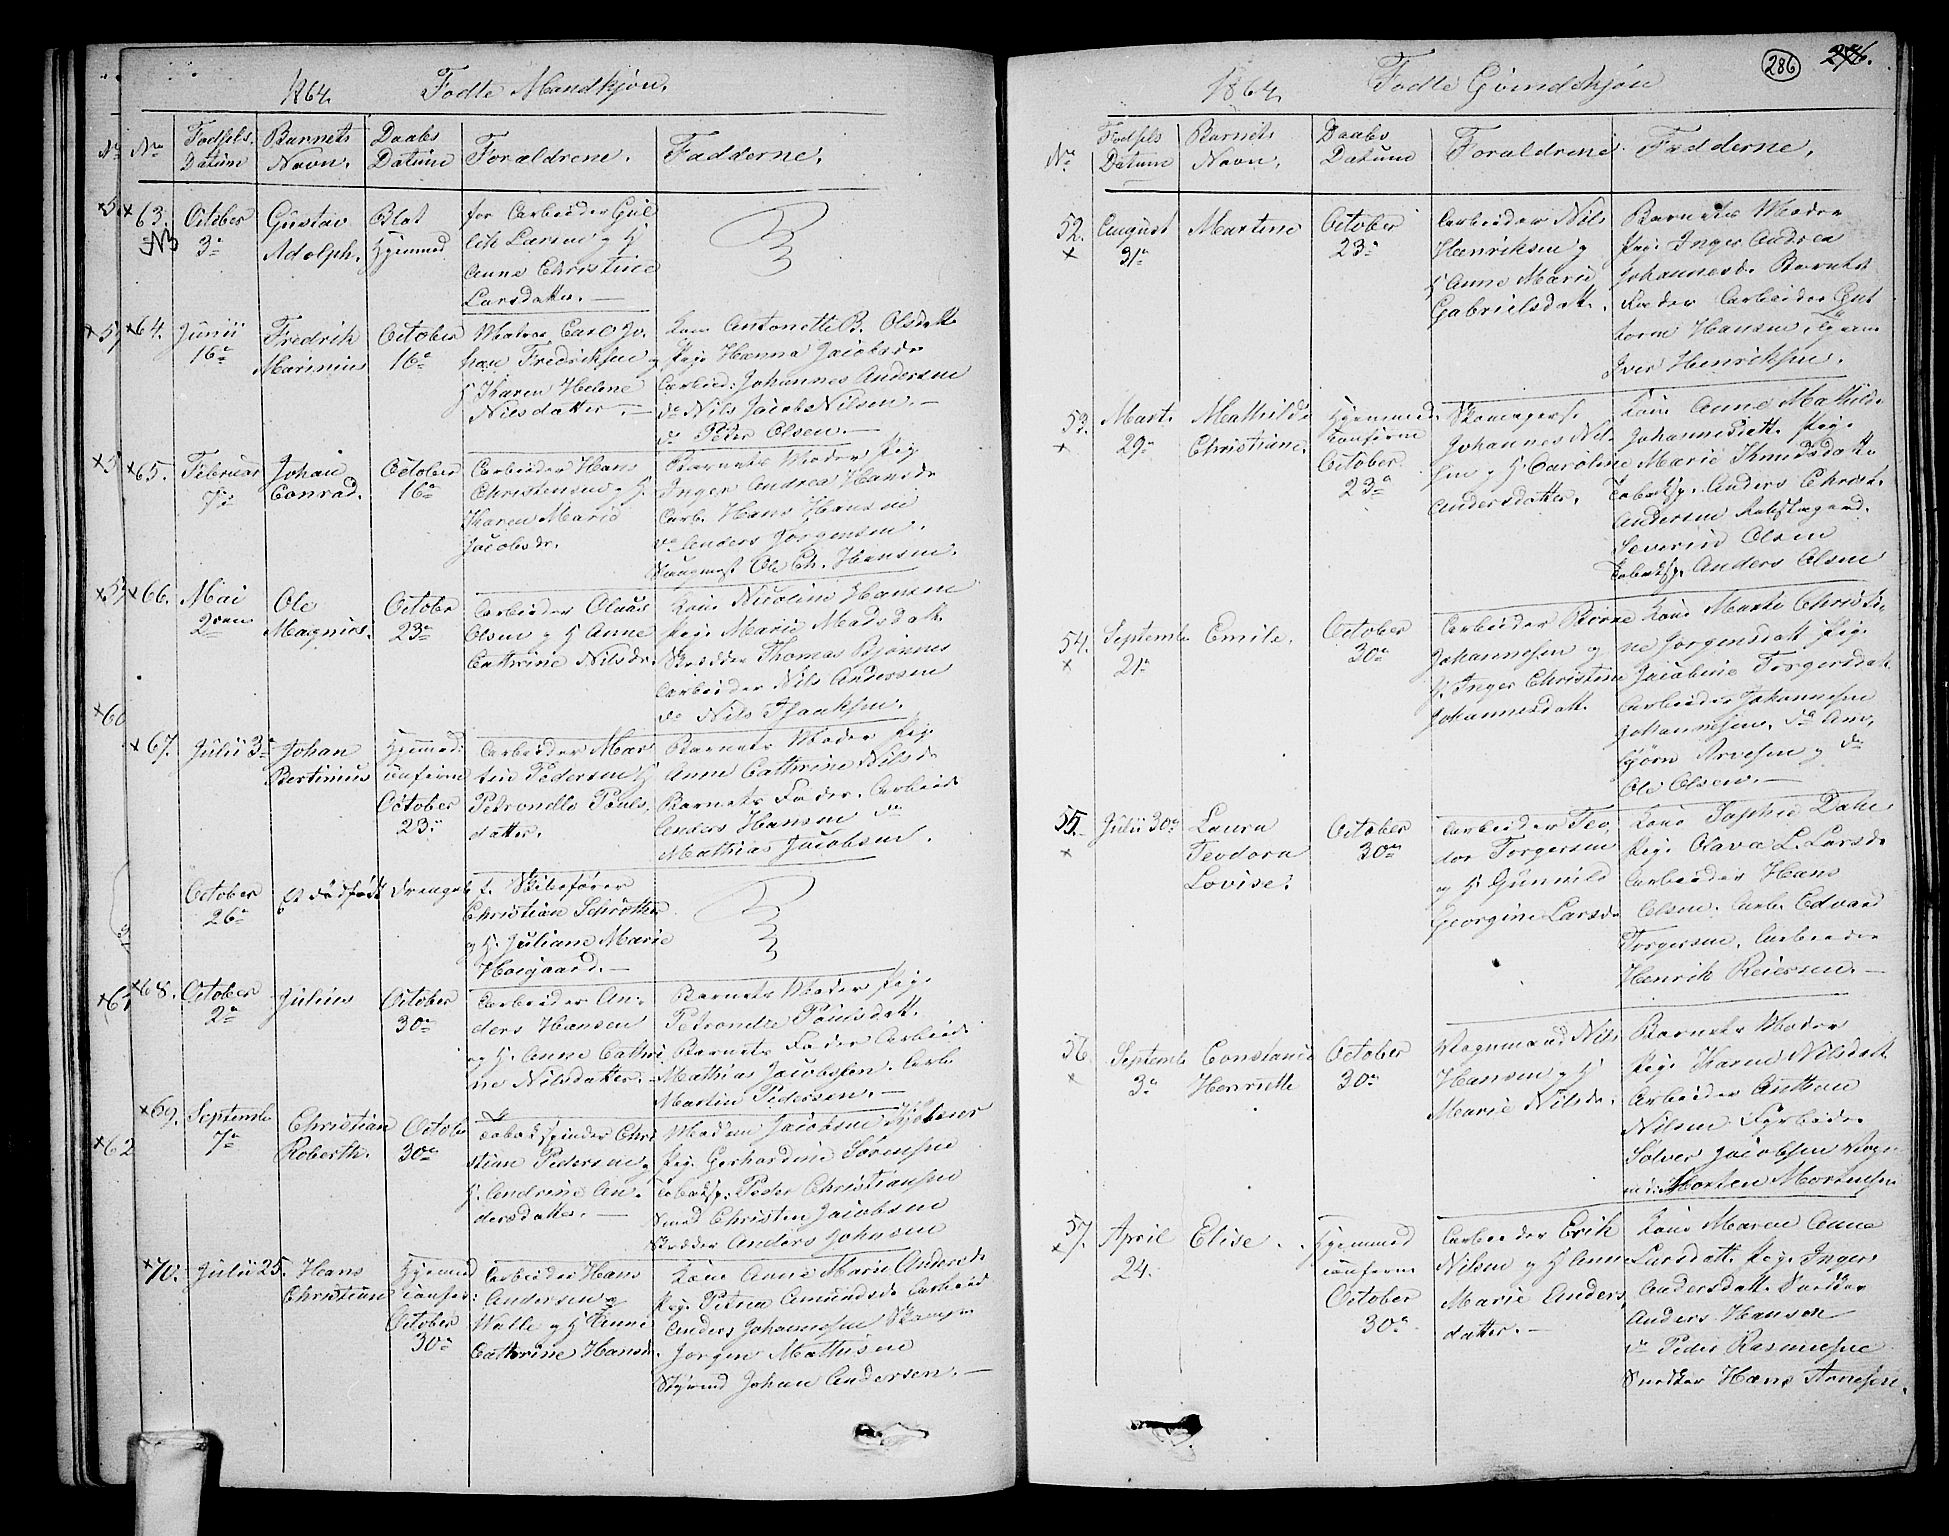 1864. Fødte Mandkjøn.
No No Fødsels Datum Barnets Navn. Daabs Datum Forældrene. Fadderne.
63. October 3de Gustav Adolph. Blot hjemmed
for Arbeider Gul
Larsen og H
Anne Christine
Larsdatter. —
64. Junii 16de Fredrik Marinius October 16de
Matros Carl Jo
han Fredriksen og
H Karen Helene
Nilsdatter. —
Kone Antonette B. Olsdatt
Pige Hanna Jacobsdr
Arbeid: Johannes Andersen
do Nils Jacob Nilsen. —
do Peder Olsen. —
65. Februar 7de Johan Conrad. October 16de
Arbeider Hans
Christensen og H.
Karen Marie
Jacobsdr.
Barnets Moder Pig
Inger Andrea Hansdr
Arb. Hans Hansen
do Anders Jørgensen
Ole Ch. Hansen.
66. Mai 2den Ole Magnus. October 23de
Arbeider Olaus
Olsen og H Anne
Cathrine Nilsdr.
Kone Nicoline Hansen
Pige Marie Madsdatt.
Skrædder Thomas Bjønnes
Arbeider Nils Andersen
do Nils Isaaksen.
67. Julii 3de Johan Bertinius Hjemmed: confirm October 23de
Arbeider Mar
tin Pedersen og H
Petronelle Pouls
datter.
Barnets Moder Pig.
Anne Cathrine Nilsd.
Barnets Fader. Arbeid
Anders Hansen do
Mathias Jacobsen.
October 26de Et dødfødt Drengeb
f. Skibsfører
Christian Schrøtter
og H. Juliane Marie
Høigaard. —
68. October 2de Julius October 30de
Arbeider An-
ders Hansen
og H. Anne Cathri
ne Nilsdatter. —
Barnets Moder Pig.
Petronelle Poulsdatt.
Barnets Fader Arbeid.
Mathias Jacobsen. Arbe
Martin Pedersen. —
69. Septembr 7de Christian Roberth. October 30de
Tobaksspinder Chri
stian Pedersen og
H. Andrine An-
dersdatter. —
Madm Jacobsen
Pig. Gerhardine Sørensen
Tobaksp. Peder Christiansen
Smed Christen Jacobsen
Skrædder Anders Johnsen
70. Julii 25. Hans Christian Hjemmed confir: October 30de
Arbeider Hans
Andersen
Walle og H Anne
Cathrine Hansdr.
Kone Anne Marie Andersdr
Pig. Petrea Amundsd. Arbeid
Anders Johannesen
Jørgen Mathisen
Johan Andersen. —
286 276.
1864. Fødte Qvindekjøn
No Fødsels Datum Barnets Navn. Daabs Datum Forældrene Fadderne.
52. August 31te Martine October 23de
Arbeider Nils
Henriksen og
H Anne Marie
Gabrielsdatt.
Barnets Moder
Pige Inger Andrea
Johannesdr. Barnets
Fader Arbeider Gut
torm Hansen,
Iver Henriksen.
53. Mart. 29de Mathilde Christiane. Hjemmed. Confirm October 23de
Skomagers.
Johannes Nil
sen og H. Caroline
Andersdatter.
Kone Anne Mathild.
Johannesdatt. Pige
Marie Knudsdatt
Tobaksp. Anders Christ.
Andersen
Severin Olsen
Tobaksp. Anders Olsen
54. Septembr 21de Emile. October 30de
Arbeider Børre
Johannesen og
H. Inger Christine
Johannesdatt.
Kone Marte Christi
ne Jørgensdatt Pige
Jacobine Torgersdatt
Arbeider Johannesen
Johannesen, do Am
bjørn Arvesen og do
Ole Olsen. —
55. Julii 30te Laura Teodora Lovise. October 30de
Arbeider Teo
dor Torgersen
og H. Gunnild
Georgine Larsdr
Kone Sophie Dahl
Pige Olava L. Larsdr
Arbeider Hans
Olsen. Arb. Edvard
Torgersen. Arbeider
Henrik Reiersen. —
56. Septembr 3de Constance Henriette October 30de
Vognmand Nils
Hansen og H
Marie Nilsdr.
Barnets Moder
Pige Karen Nilsdatt
Arbeider Anthon
Nilsen Arbeider
Solver Jacobsen Vogn
m: Morten Mortensen
57. April 24. Elise. Hjemmed confirm October 30de
Arbeider Erik
Nilsen og H Ann
Marie Anders
datter. —
Kone Maren Anne
Larsdatt. Pige. Inger
Andersdatt. Snedker
Anders Hansen
do Peder Rasmussen
Snedker Hans Arnesen.